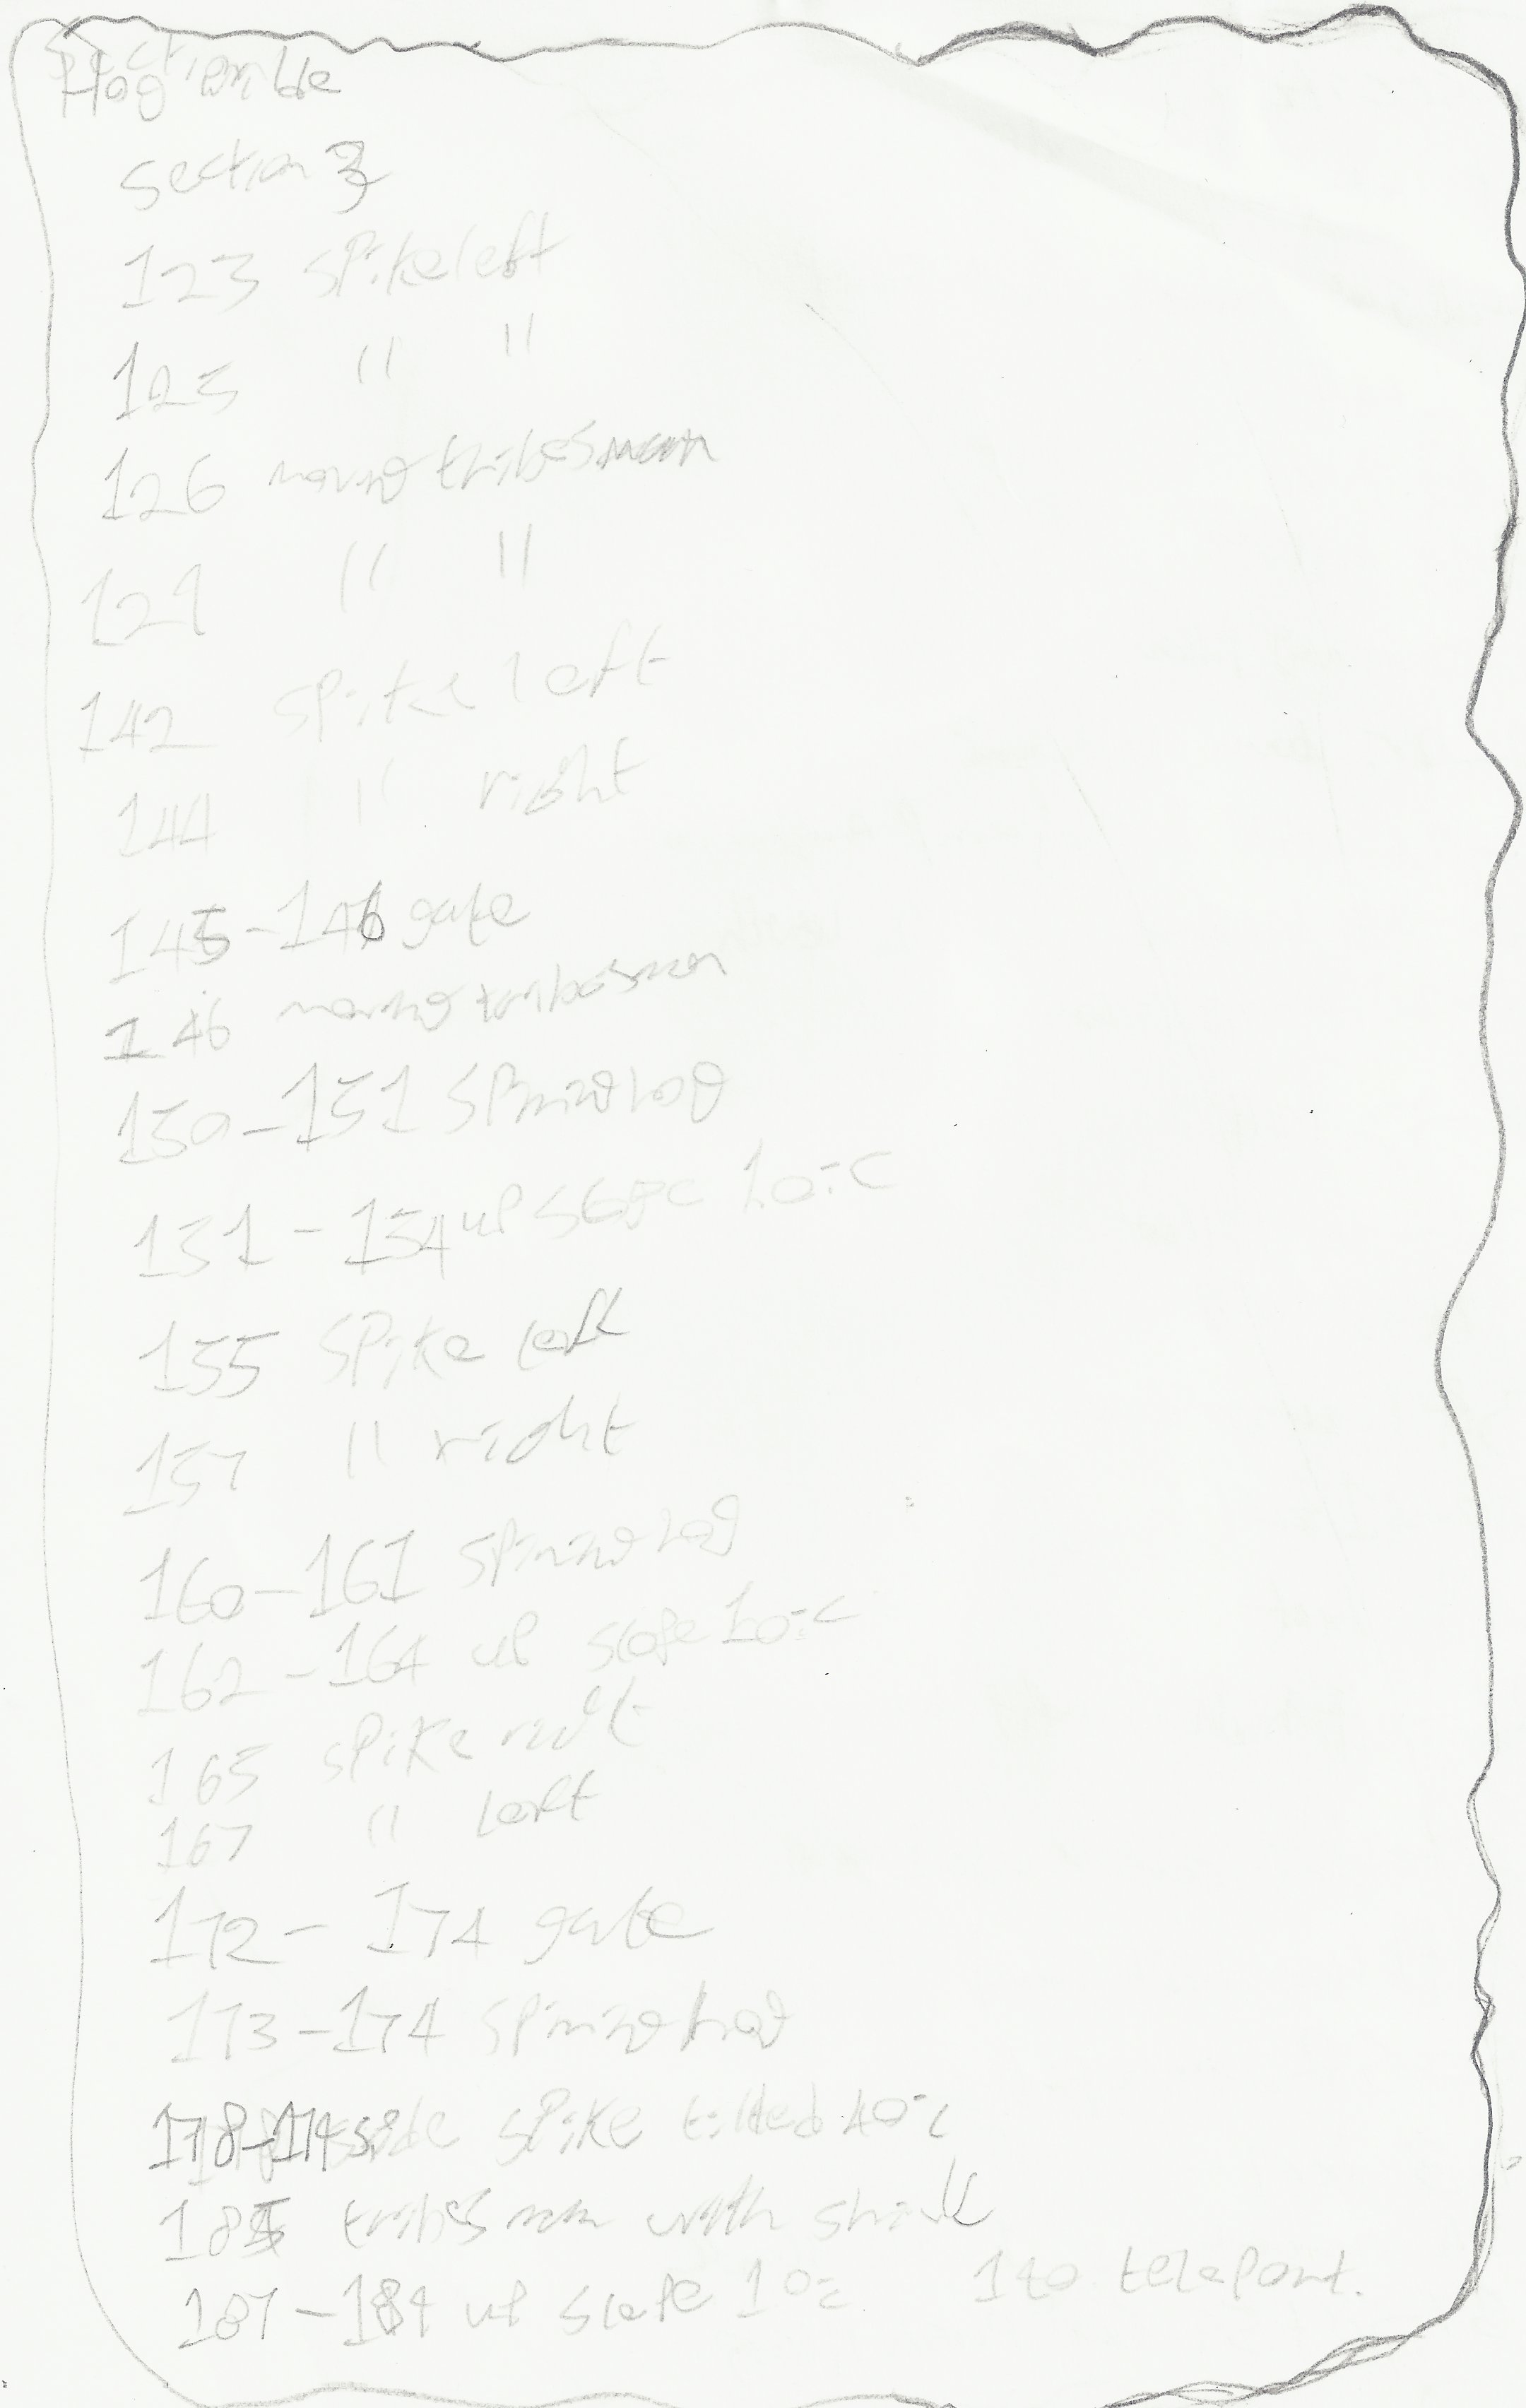 Hog
section 3
123 spike left
125 " "
126 moving tribesman
129 " "
142 spike left
144 " right
145-146 gate
146 moving tribesman
150-151 spining log
151-154 up slope 10°c
155 spike left
157 " right
160-161 spining log
162-164 up slope 10°c
165 spike
167 " left
172-174 gate
173-174 spining log
side spike tilted 40°c
185 tribesman with
187-189 up slope 10°c telepont.